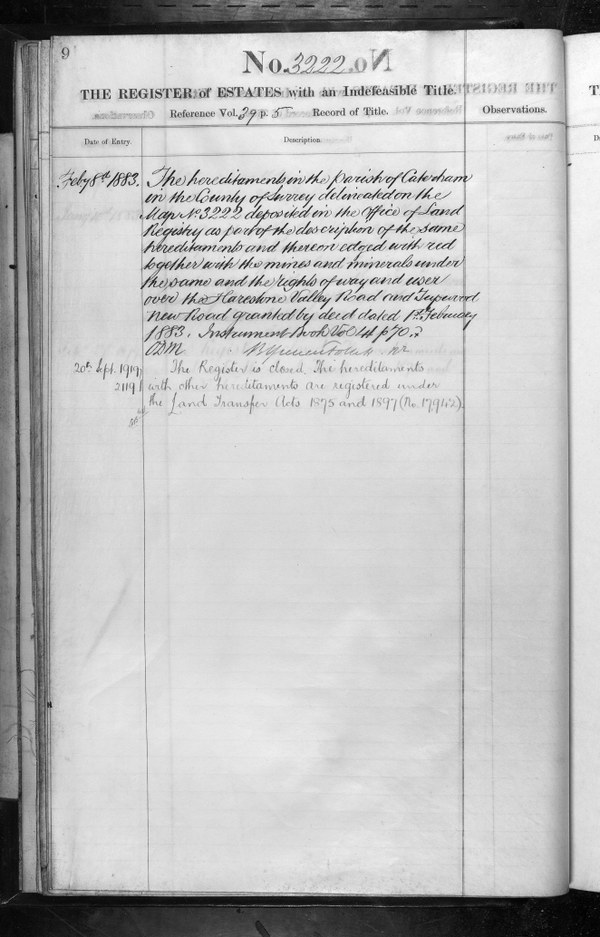 9
No. 3222
THE REGISTER of ESTATES with an Indefeasible Title.
Reference Vol. 39 p. 5 Record of Title.
Observations.
Date of Entry.
Description
Feby 8th 1883.
The hereditaments in the Parish of Caterham
in the County of Surrey delineated on the
Map No 3222 deposited in the Office of Land
Registry as part of the description of the same
hereditaments and thereon edged with red
together with the mines and minerals under
the same and the rights of way and user
over the Harestone Valley Road and Tupwood
New Road granted by deed dated 1st February
1883. Instrument Book Vol 44 p 70.
20th Sept. 1919
2119.
The Register is closed. The hereditaments
with other hereditaments are registered under
the Land Transfer Acts 1875 and 1897 (No. 17942)